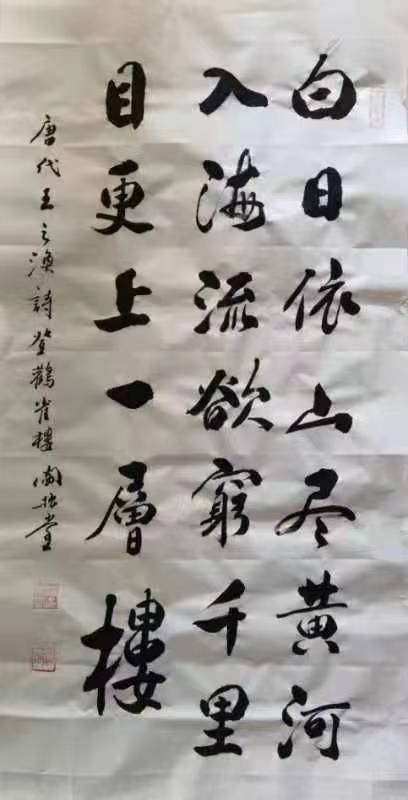 白日依山尽黄河
入海流欲窮千里
目更上一層樓
唐代王之渙詩登鸛雀樓